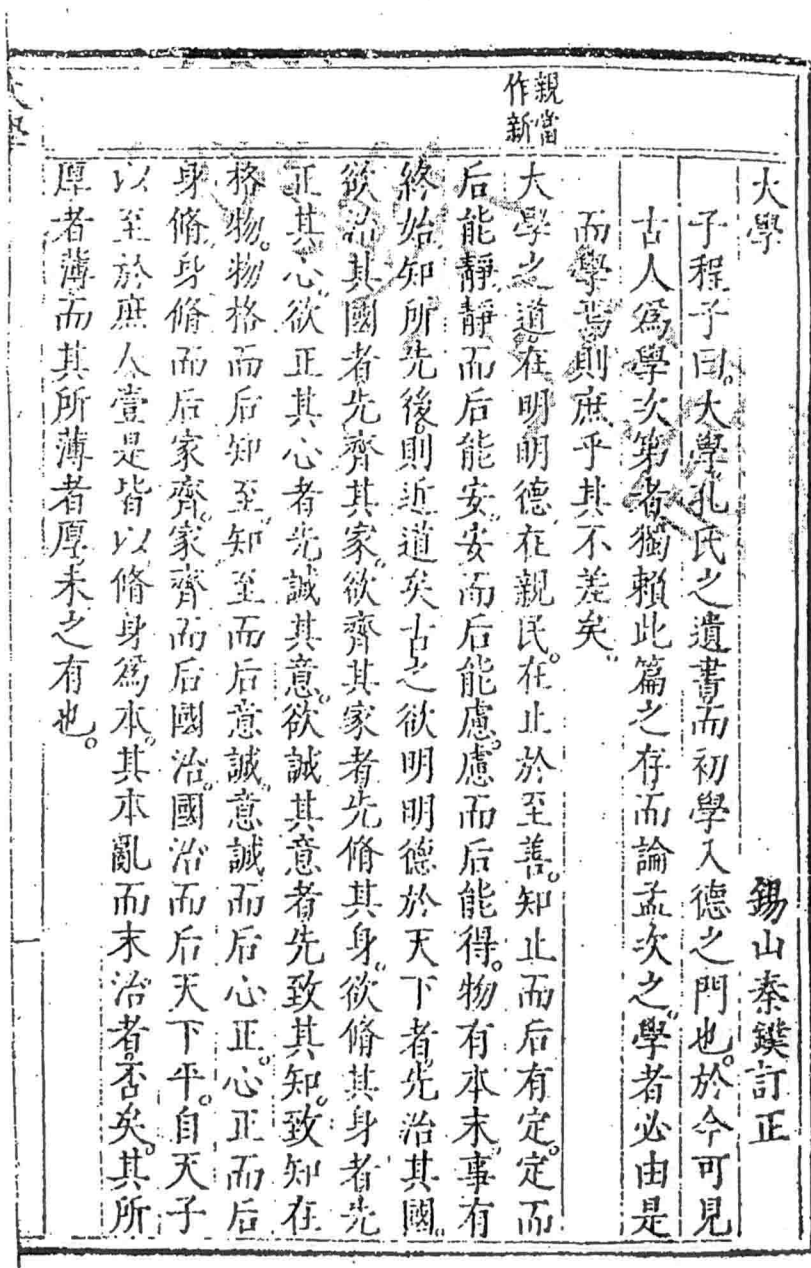 大學
錫山秦鏷訂正
子程子曰。大學孔氏之遺書而初學入德之門也。於今可見
古人爲學次第者獨賴此篇之存而論孟次之。學者必由是
而學焉則庶乎其不差矣。
親當
作新
大學之道在明明德在親民。在止於至善。知止而后有定。定而
后能靜靜而后能安。安而后能慮。慮而后能得。物有本末。事有
終始知所先後則近道矣古之欲明明德於天下者先治其國。
欲治其國者先齊其家。欲齊其家者先脩其身。欲脩其身者先
正其心。欲正其心者先誠其意。欲誠其意者先致其知。致知在
格物。物格而后知至。知至而后意誠。意誠而后心正。心正而后
身脩。身脩而后家齊。家齊而后國治。國治而后天下平。自天子
以至於庶人壹是皆以脩身爲本。其本亂而末治者。否矣。其所
厚者薄而其所薄者厚。未之有也。
大學